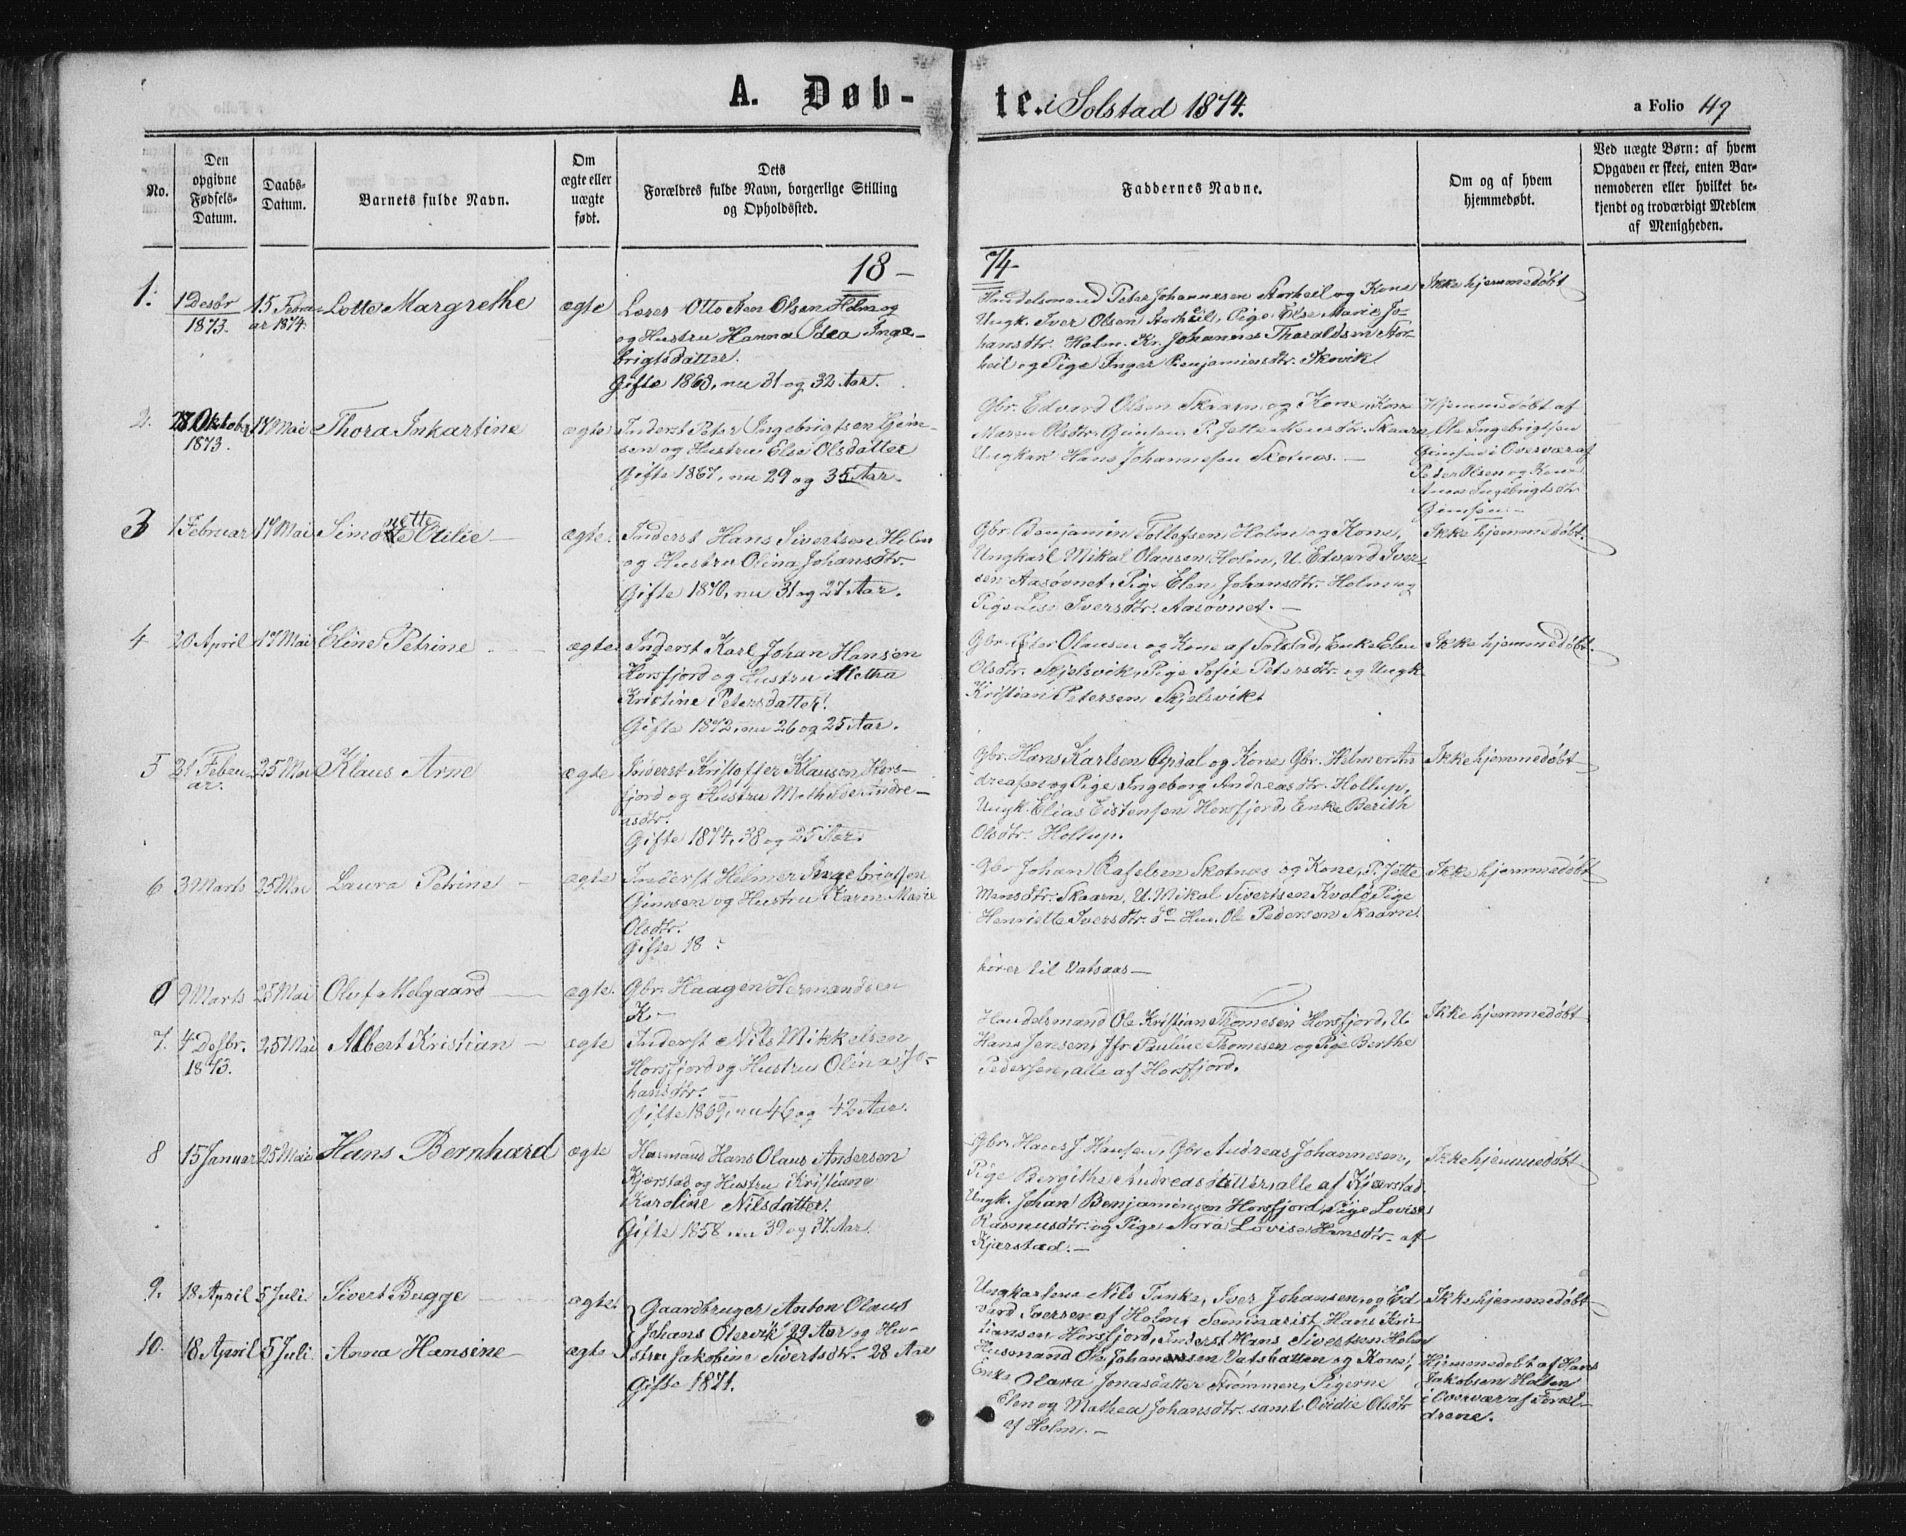 A. Døb-
te. i Solstad 1874.
a Folio 49
No.
Den opgivne Fødsels-Datum.
Daabs-Datum.
Barnets fulde Navn.
Om ægte eller uægte født.
Dets Forældres fulde Navn, borgerlige Stilling og Opholdssted.
Faddernes Navne.
Om og af hvem hjemmedøbt.
Ved uægte Børn: af hvem Opgaven er skeet, enten Barnemoderen eller hvilket bekjendt og troværdigt Medlem af Menigheden.
18-
74-
1. 1 Desbr 1873. 15 Februar 1874. Lotte Margrethe ægte
Lærer Otto Olsen Holm og
og Hustru Hanna Idea Inge-
brigtsdatter.
Gifte 1863, nu 31 og 32 Aar.
Handelsmand Peter Johannesen Storheil og Kone
Ungk. Iver Olsen Storheil, Pige Else Marie Jo-
hansdtr. Holm. Kr. Johannes Tharaldsen Stor-
heil og Pige Inger Benjaminsdtr. Skovik
Ikke hjemmedøbt
2. Oktober 1873. 17 Mai Thora Inkartine ægte
Inderst Peter Ingebrigtsen Gjem-
sen og Hustru Else Olsdatter
Gifte 1867, nu 29 og 35 Aar.
Gbr. Edvard Olsen Skaarn og Kone, Kone
Maren Olsdtr. P. Jette Mensdtr. Skaarn,
Ungkarl Hans Johannesen Skotnæs. —
Hjemmedøbt af
Ole Ingebrigtsen
i Overvær af
Peder Olsen og Kone
Anne Ingebrigtsdtr
3 1 Februar 17 Mai Simonette Otilie — ægte
Inderst Hans Sivertsen Holm
og Hustru Olina Johansdtr.
Gifte 1870, nu 31 og 27 Aar.
Gbr. Benjamin Tollefsen, Holm og Kone,
Ungkarl Mikal Olausen, Holm, U. Edvard Iver-
sen Aasøvnet, Pige Elen Johansdtr. Holm og
Pige Lise Iversdtr. Aasøvnet. —
Ikke hjemmedøbt.
4 20 April 17 Mai Eline Petrine — ægte
Inderst Karl Johan Hansen
Horsfjord og Hustru Metha
Kristine Petersdatter.
Gifte 1872, nu 26 og 25 Aar.
Gbr. Peter Olausen og Kone af Solstad, Enke Elen
Olsdtr. Skjelsvik, Pige Sofie Petersdtr. og Ungk.
Kristian Petersen, Skjelsvik
Ikke hjemmedøbt.
5 21 Febru-
ar. 25 Mai Klaus Arne ægte
Inderst Kristoffer Klausen Hors-
fjord og Hustru Mathilde Andre-
asdtr.
Gifte 1874, 38 og 25 Aar.
Gbr. Hans Karlsen Opdal og Kone Gbr. Helmer An-
dreasen og Pige Ingeborg Andreasdtr. Hollup,
Ungk. Elias Eistensen Horsfjord, Enke Berith
Olsdtr. Hollup.
Ikke hjemmedøbt
6 3 Marts 25 Mai Laura Petrine — ægte
Inderst Helmer Ingebrigtsen
Gimsen og Hustru Karen Marie
Olsdtr.
Gifte 18 ?
Gbr Johan Rafelsen Skotnæs og Kone, P. Jette
Mansdtr. Skaarn, U. Mikal Sivertsen Kvalø, Pige
Henriette Iversdtr. do Hus. Ole Pedersen Skaarn.
Ikke hjemmedøbt
0 9 Marts 25 Mai Oluf Melgaard — ægte.
Gbr. Haagen Hermandsen
K. —
hører til Vatsaas —
7. 4 Desbr. 1873. 25 Mai Albert Kristian — ægte
Inderst Nils Mikkelsen
Horsfjord og Hustru Olina Jo-
hansdtr.
Gifte 1869, nu 46 og 42 Aar.
Handelsmand Ole Kristian Thomesen Horsfjord, U.
Hans Jensen, Jfr. Pauline Thomesen og Pige Berthe
Pedersen, alle af Horsfjord.
Ikke hjemmedøbt
8 15 Januar 25 Mai Hans Bernhard ægte
Husmand Hans Olaus Andersen
Kjærstad og Hustru Kristiane
Karoline Nilsdatter.
Gifte 1858 nu 39 og 37 Aar.
Gbr. Hans J Hansen, Gbr Andreas Johannesen,
Pige Bergithe Andreasdatter, alle af Kjærstad.
Ungk. Johan Benjaminsen Horsfjord, Pige Lovise
Rasmusdtr. og Pige Nora Lovise Hansdtr. af
Kjærstad. —
Ikke hjemmedøbt
9. 18 April 5 Juli. Sivert Bugge — ægte.
10. 18 April 5 Juli. Anna Hansine — ægte
Gaardbruger Anton Olaus
Johans Olervik 29 Aar og Hu-
stru Jakobine Sivertsdtr. 28 Aar
Gifte 1871.
Ungkarlene Nils Tanke, Iver Johansen og Ed-
vard Iversen af Holm, Seminarist Hans Kri-
stiansen Horsfjord, Inderst Hans Sivertsen Holm
Husmand Ole Johannesen Vatsbatten og Kone,
Enke Olava Jonasdatter Strømmen, Pigerne
Elen og Mathea Johansdtr. samt Ovidie Olsdtr
af Holm. —
Ikke hjemmedøbt
Hjemmedøbt af Hans
Jakobsen Holten
i Overvær af Foræl-
drene.